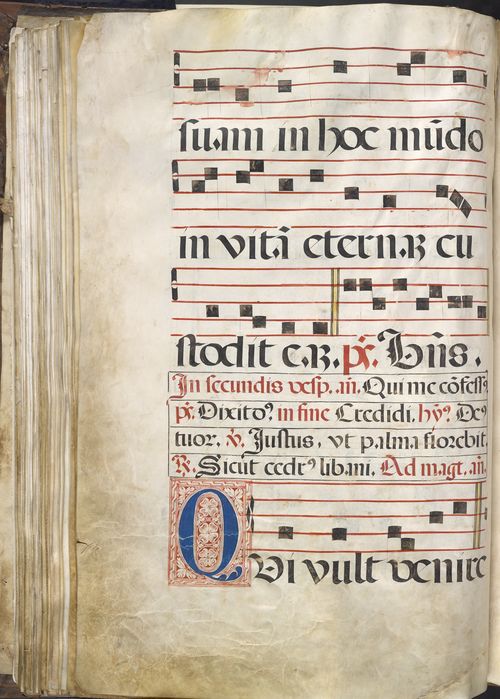 suam in hoc mūdo
in vitā eternaꝫ cu
stodit eaꝫ. ps̄. Bn̄s.
In secundis vesp. an̄. Qui me cōfess⁹
ps̄. Dixit o⁹. in fine Credidi. hy⁹. De⁹
tuor. v̄. Justus. vt palma florebit.
R̄. Sicut cedr⁹ libani. Ad magt. an̄.
QVi vult venire